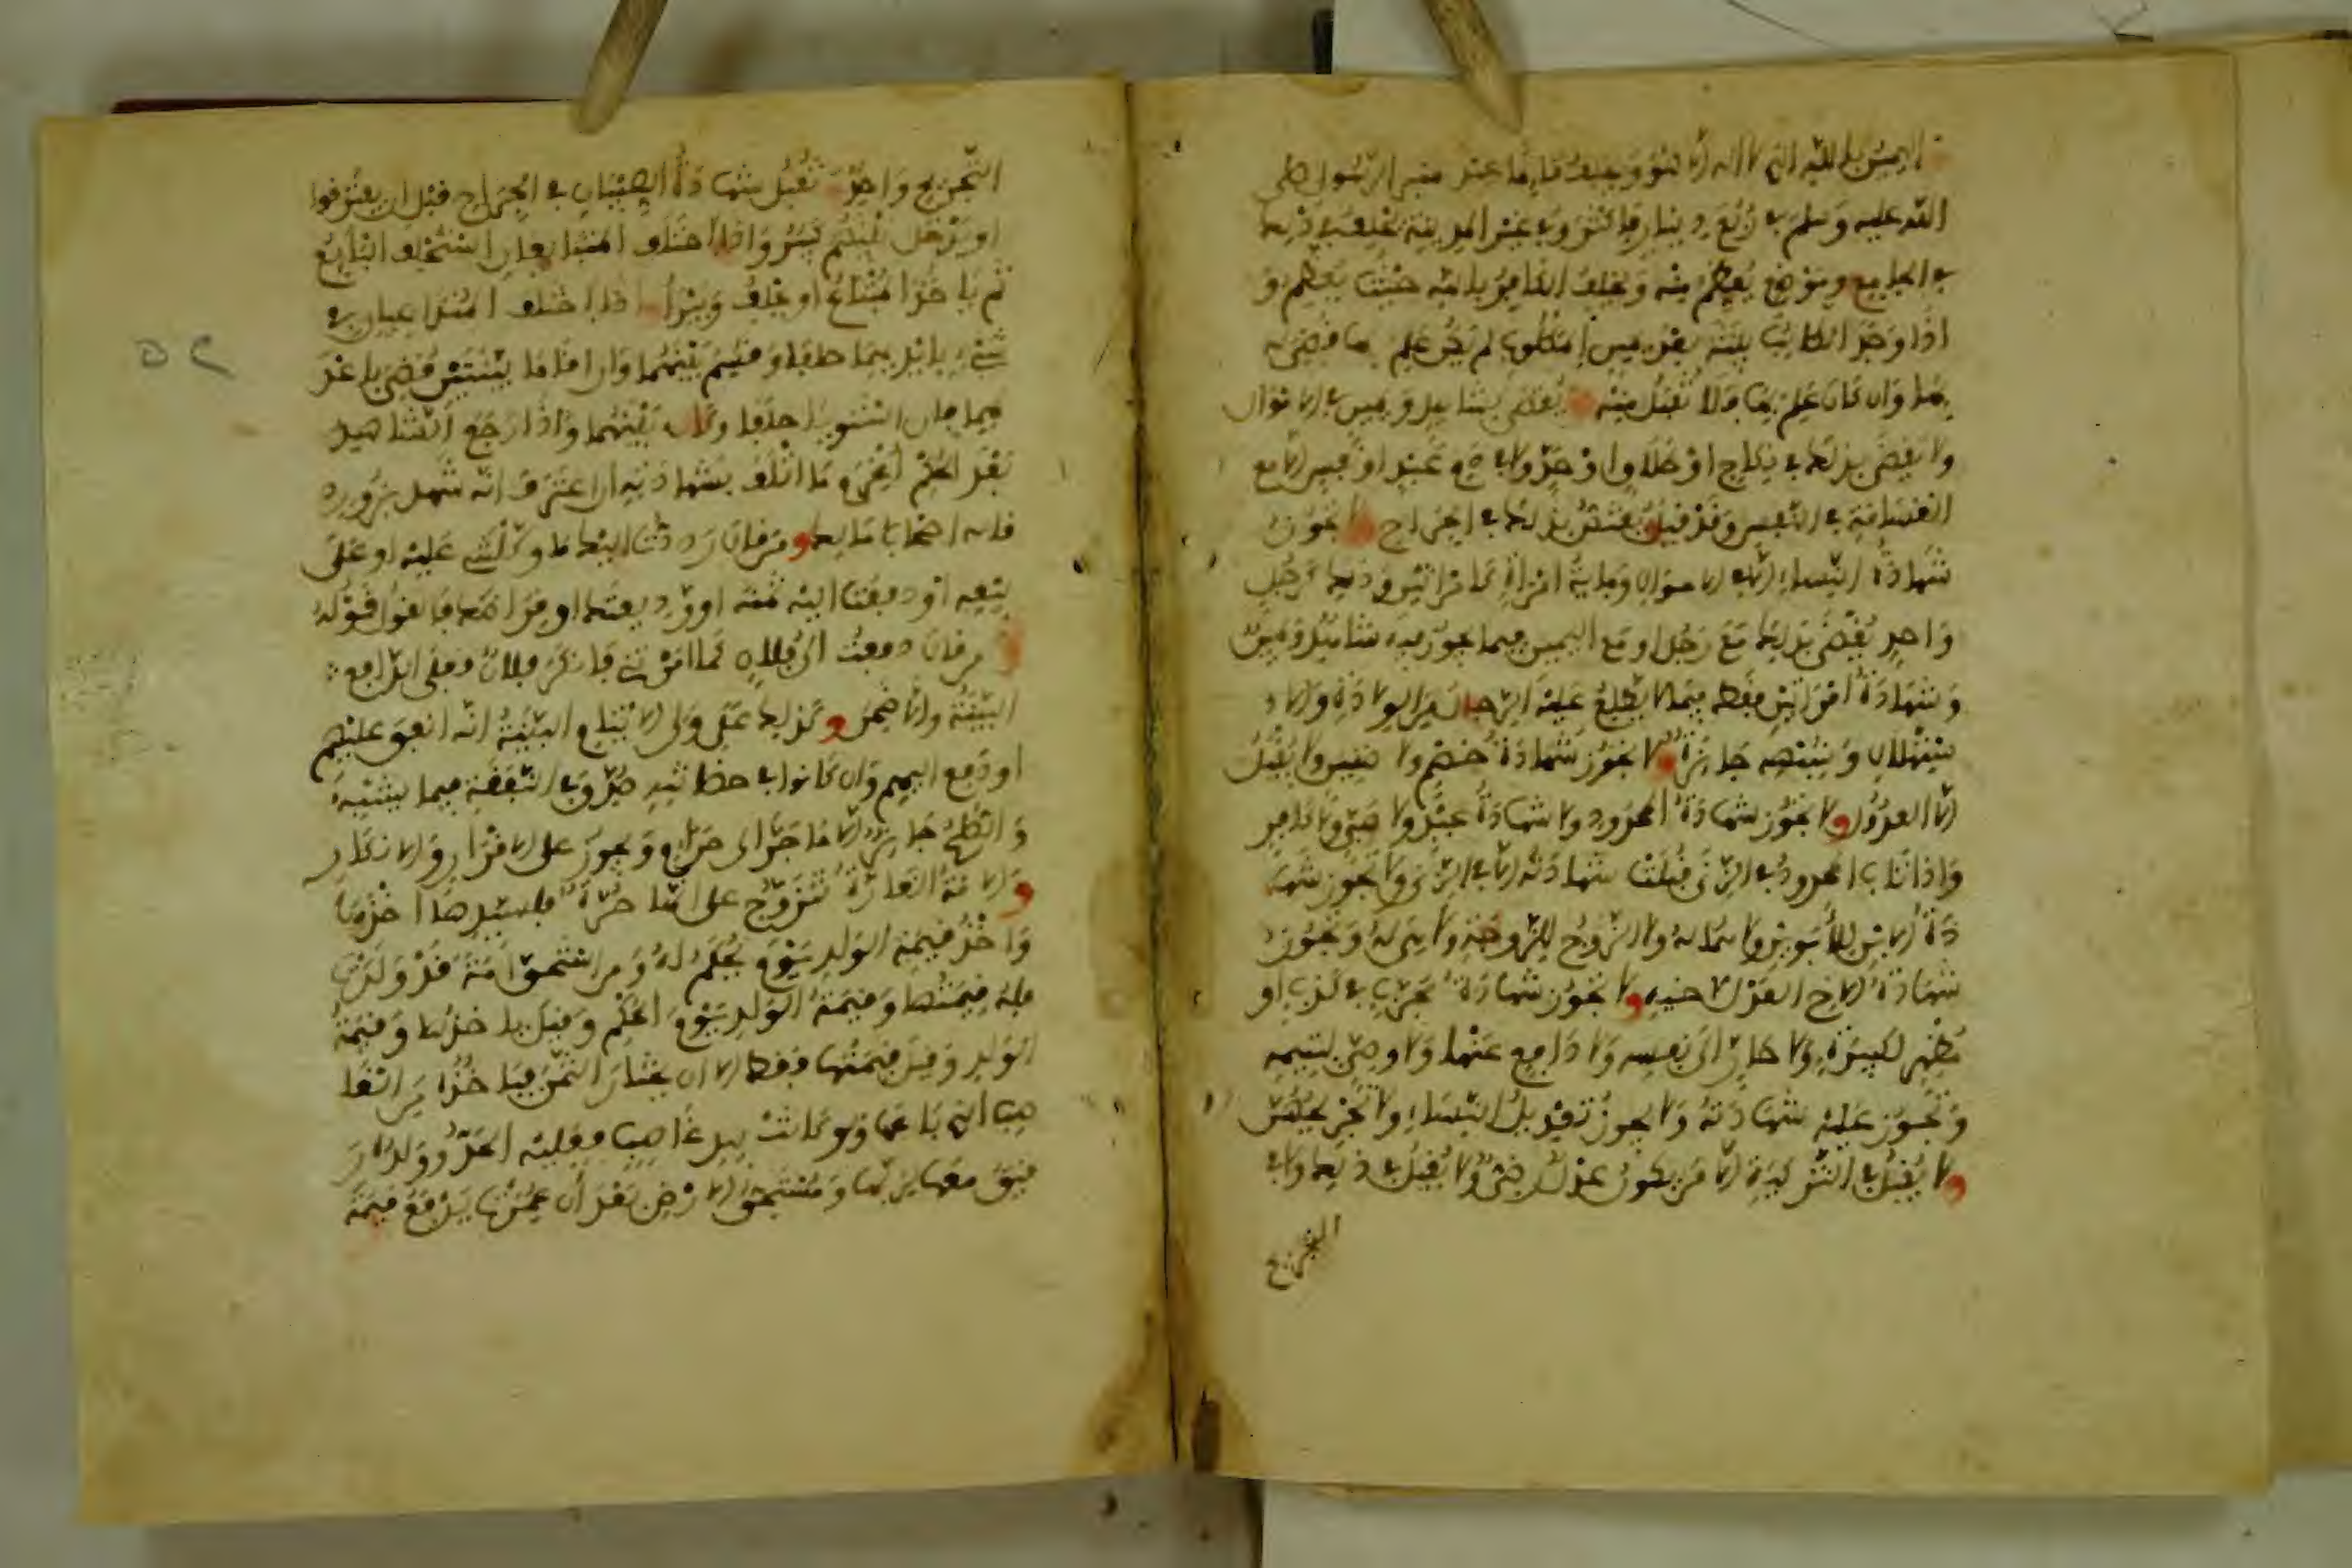 اليمين بالله الذي لا اله الا هو ويحلف قايما عند منبر الرسول صلى
الله عليه وسلم في ربع دينار فاكثر وفي غير المدينة يحلف في ذلك
في الجامع وموضع يعظم منه ويحلف الكافر بالله حيث يعظم و
اذا وجد الطالب بينة بعد يمين المطلوب لم يكن علم بها قضي له
بها وان كان علم بها فلا تقبل منه يقضى بشاهد ويمين في الاموال
ولا يقضى بذلك في نكاح او طلاق او حد ولا في دم عمد او نفس الا مع
القسامة في النفس وقد قيل يقضى بذلك في الجراح ولا تجوز
شهادة النساء الا في الاموال ومائة امراة كامراتين وذلك كرجل
واحد يقضى بذلك مع رجل او مع اليمين فيما يجوز فيه شاهد ويمين
وشهادة امراتين فقط فيما لا يطلع عليه الرجال من الولادة والا
ستهلال وشبهه جايزة ولا تجوز شهادة خصم ولا ظنين ولا يقبل
الا العدول ولا تجوز شهادة المحدود ولا شهادة عبد ولا صبي ولا كافر
واذا تاب المحدود في الزنى قبلت شهادته الا في الزنى ولا تجوز شها
دة الابن للابوين ولا هما له ولا الزوج للزوجة ولا هي له وتجوز
شهادة الاخ العدل لاخيه ولا تجوز شهادة مجرب في كذب او
مظهر لكبيرة ولا جار الى نفسه ولا دافع عنها ولا وصي ليتيمه
وتجوز عليه شهادته ولا يجوز تعديل النساء ولا تجريحهن
ولا يقبل في التزكية الا من يكون عدل رضى ولا يقبل في ذلك ولا في
التجريح
التجريح واحد تقبل شهادة الصبيان في الجراح قبل ان يفترقوا
او يدخل بينهم كبير واذا اختلف المتبايعان استحلف البايع
ثم ياخذ المبتاع او يحلف ويبرا اذا اختلف المتداعيان في
شيء بايديهما حلفا وقسم بينهما وان اقاما بينتين قضي باعد
لهما فان استويا حلفا وكان بينهما واذا رجع الشاهد
بعد الحكم اغرم ما اتلف بشهادته ان اعترف انه شهد بزور
قاله اصحاب مالك ومن قال رددت اليك ما وكلتني عليه او على
بيعه او دفعت اليك ثمنه او وديعتك او قراضك فالقول قوله
ومن قال دفعت الى فلان كما امرتني فانكر فلان فعلى الدافع
البينة والا ضمن وكذلك على ولي الايتام البينة انه انفق عليهم
او دفع اليهم وان كانوا في حضانته صدق في النفقة فيما يشبه
والصلح جايز الا ما جر الى حرام ويجوز على الاقرار والانكار
والامة الغارة تتزوج على انها حرة فلسيدها اخذها
واخذ قيمة الولد يوم يحكم له ومن استحق امة قد ولدت
فله قيمتها وقيمة الولد يوم الحكم وقيل ياخذها وقيمة
الولد وقيل قيمتها فقط الا ان يختار الثمن فياخذه من الغا
صب الذي باعها ولو كانت بيد غاصب فعليه الحد وولده ر
قيق معها لربها ومستحق الارض بعد ان عمرت يدفع قيمة